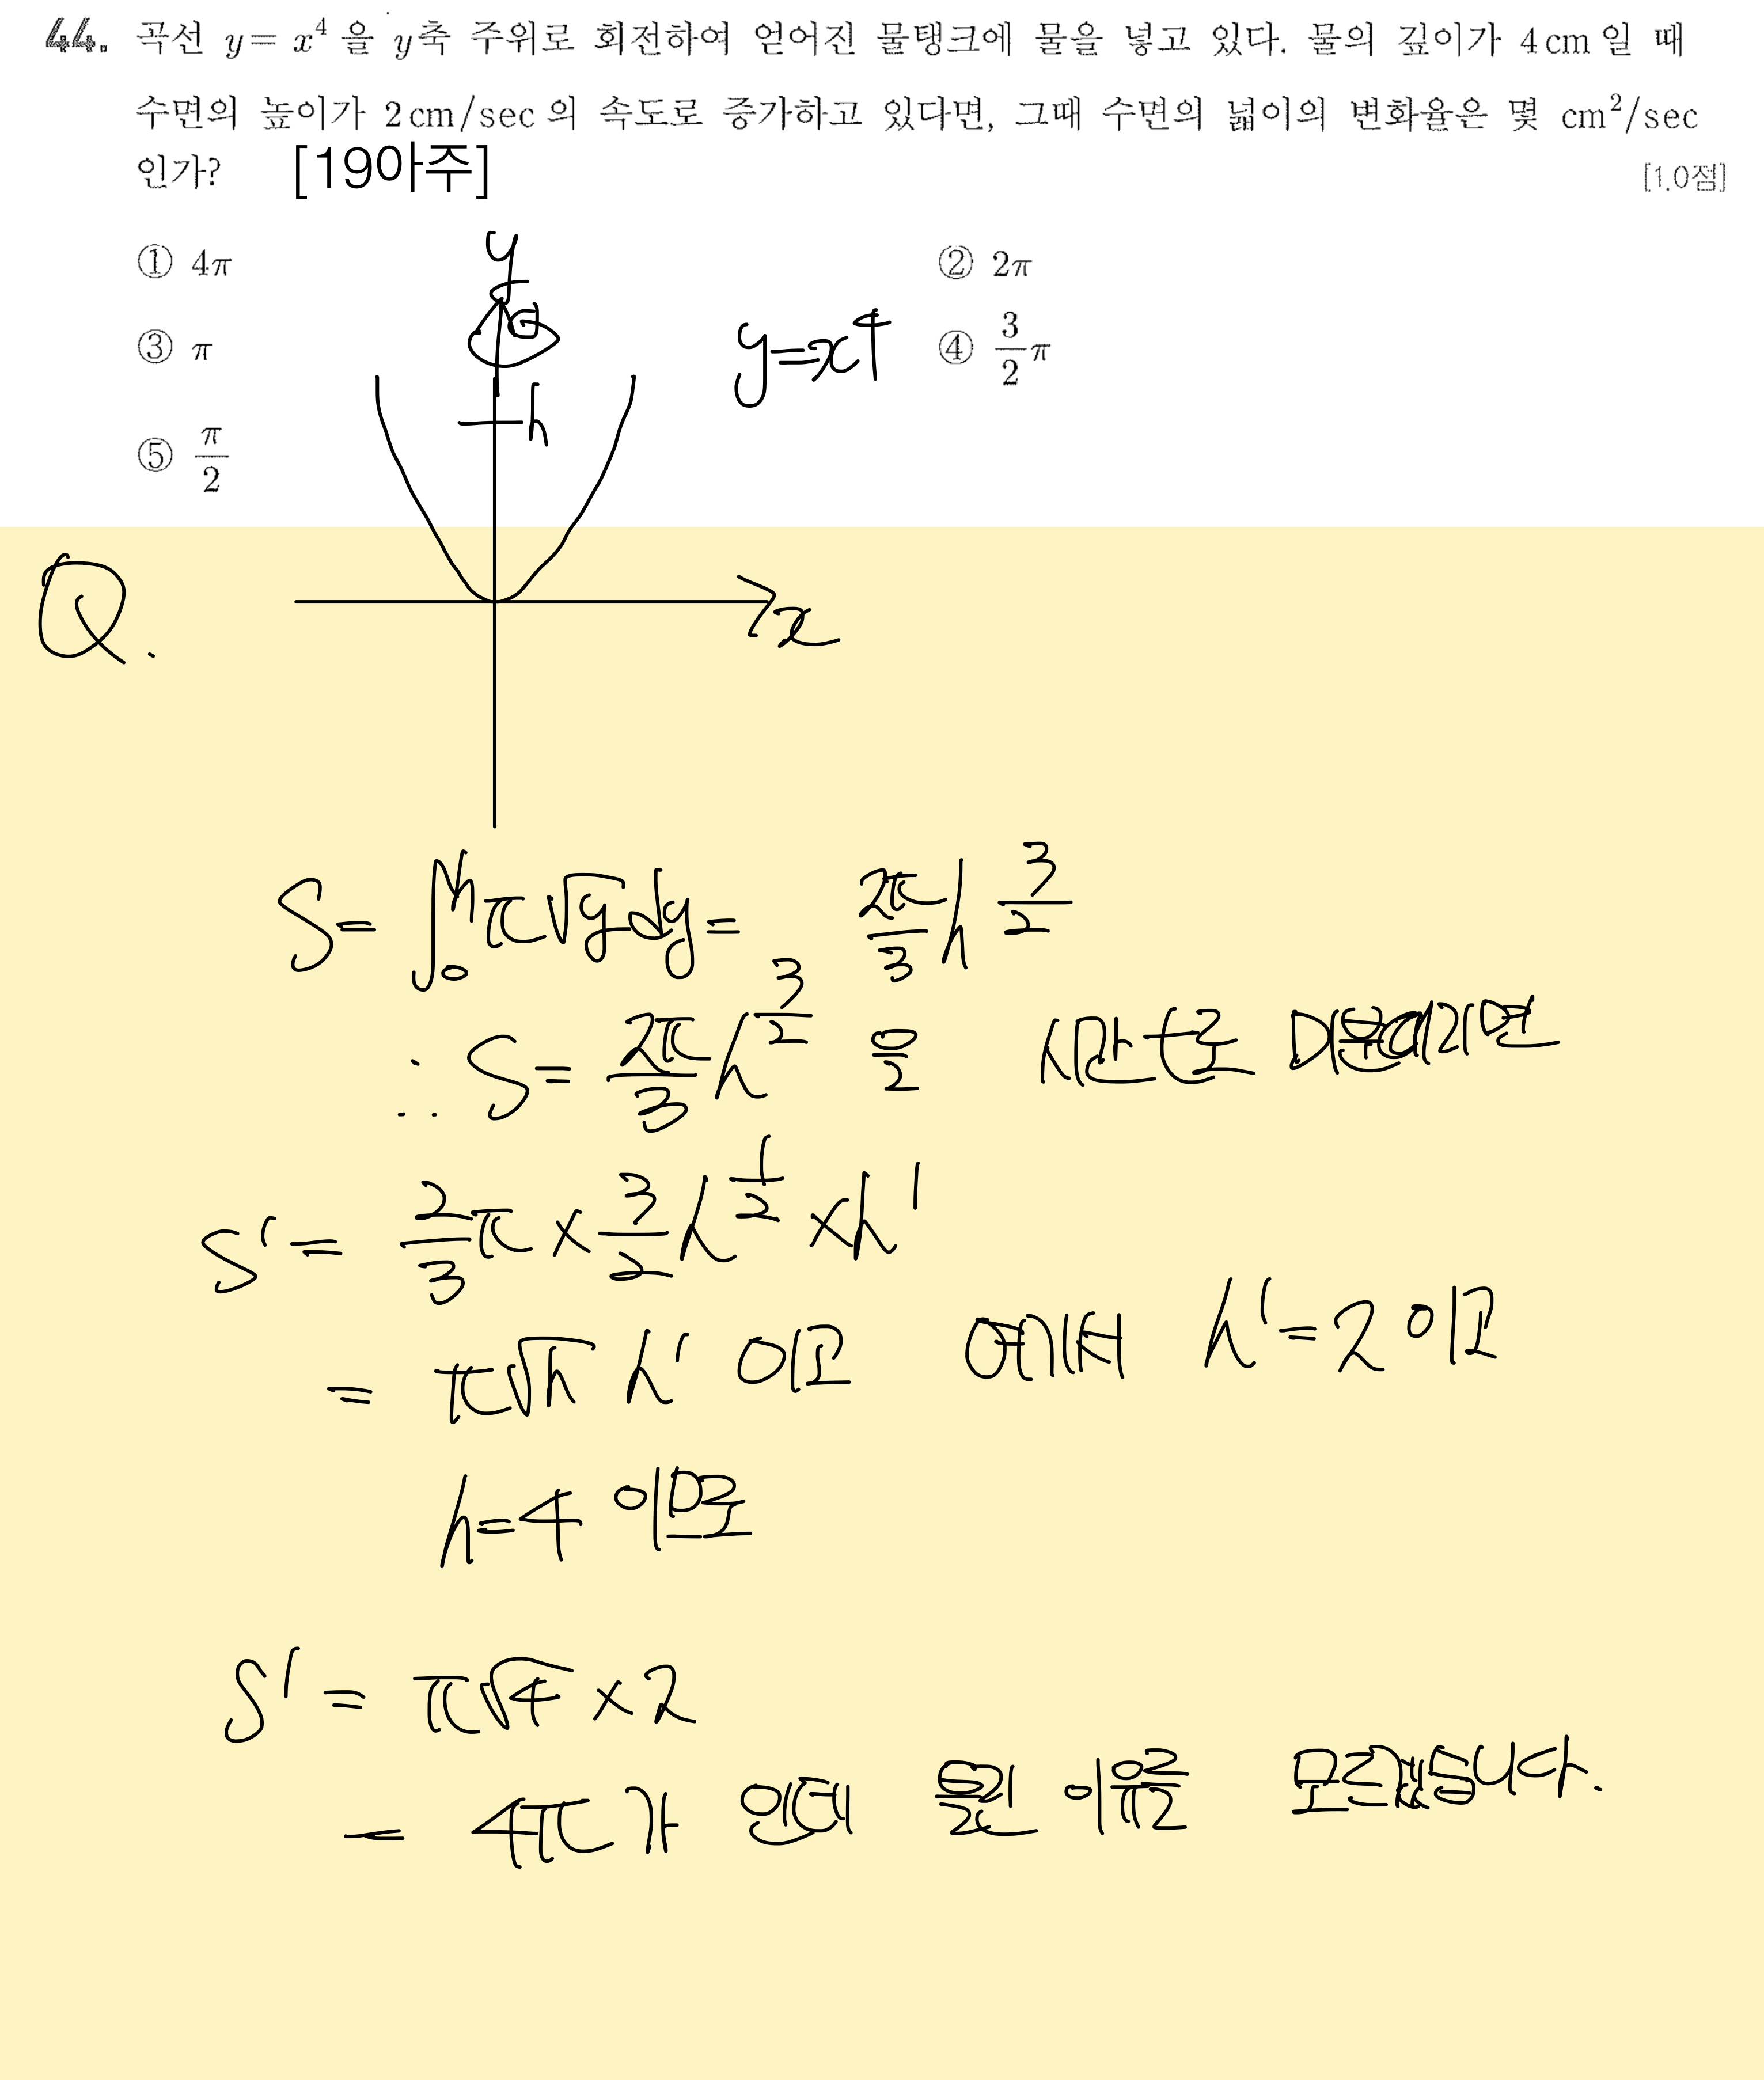 44. 곡선 y = x⁴ 을 y축 주위로 회전하여 얻어진 물탱크에 물을 넣고 있다. 물의 깊이가 4 cm 일 때
수면의 높이가 2 cm/sec 의 속도로 증가하고 있다면, 그때 수면의 넓이의 변화율은 몇 cm²/sec
인가? [19아주] [1.0점]
① 4π ② 2π
③ π ④ 3/2 π
⑤ π/2
y
h
y=x⁴
x
Q.
S = ∫₀ʰ π√y dy = 2π/3 h^(3/2)
∴ S = 2π/3 h^(3/2) 을 시간 t로 미분때리면
S' = 2/3 π × 3/2 h^(1/2) × h'
= π√h h' 이고 여기서 h' = 2 이고
h=4 이므로
S' = π√4 × 2
= 4π가 인데 틀린 이유를 모르겠습니다.